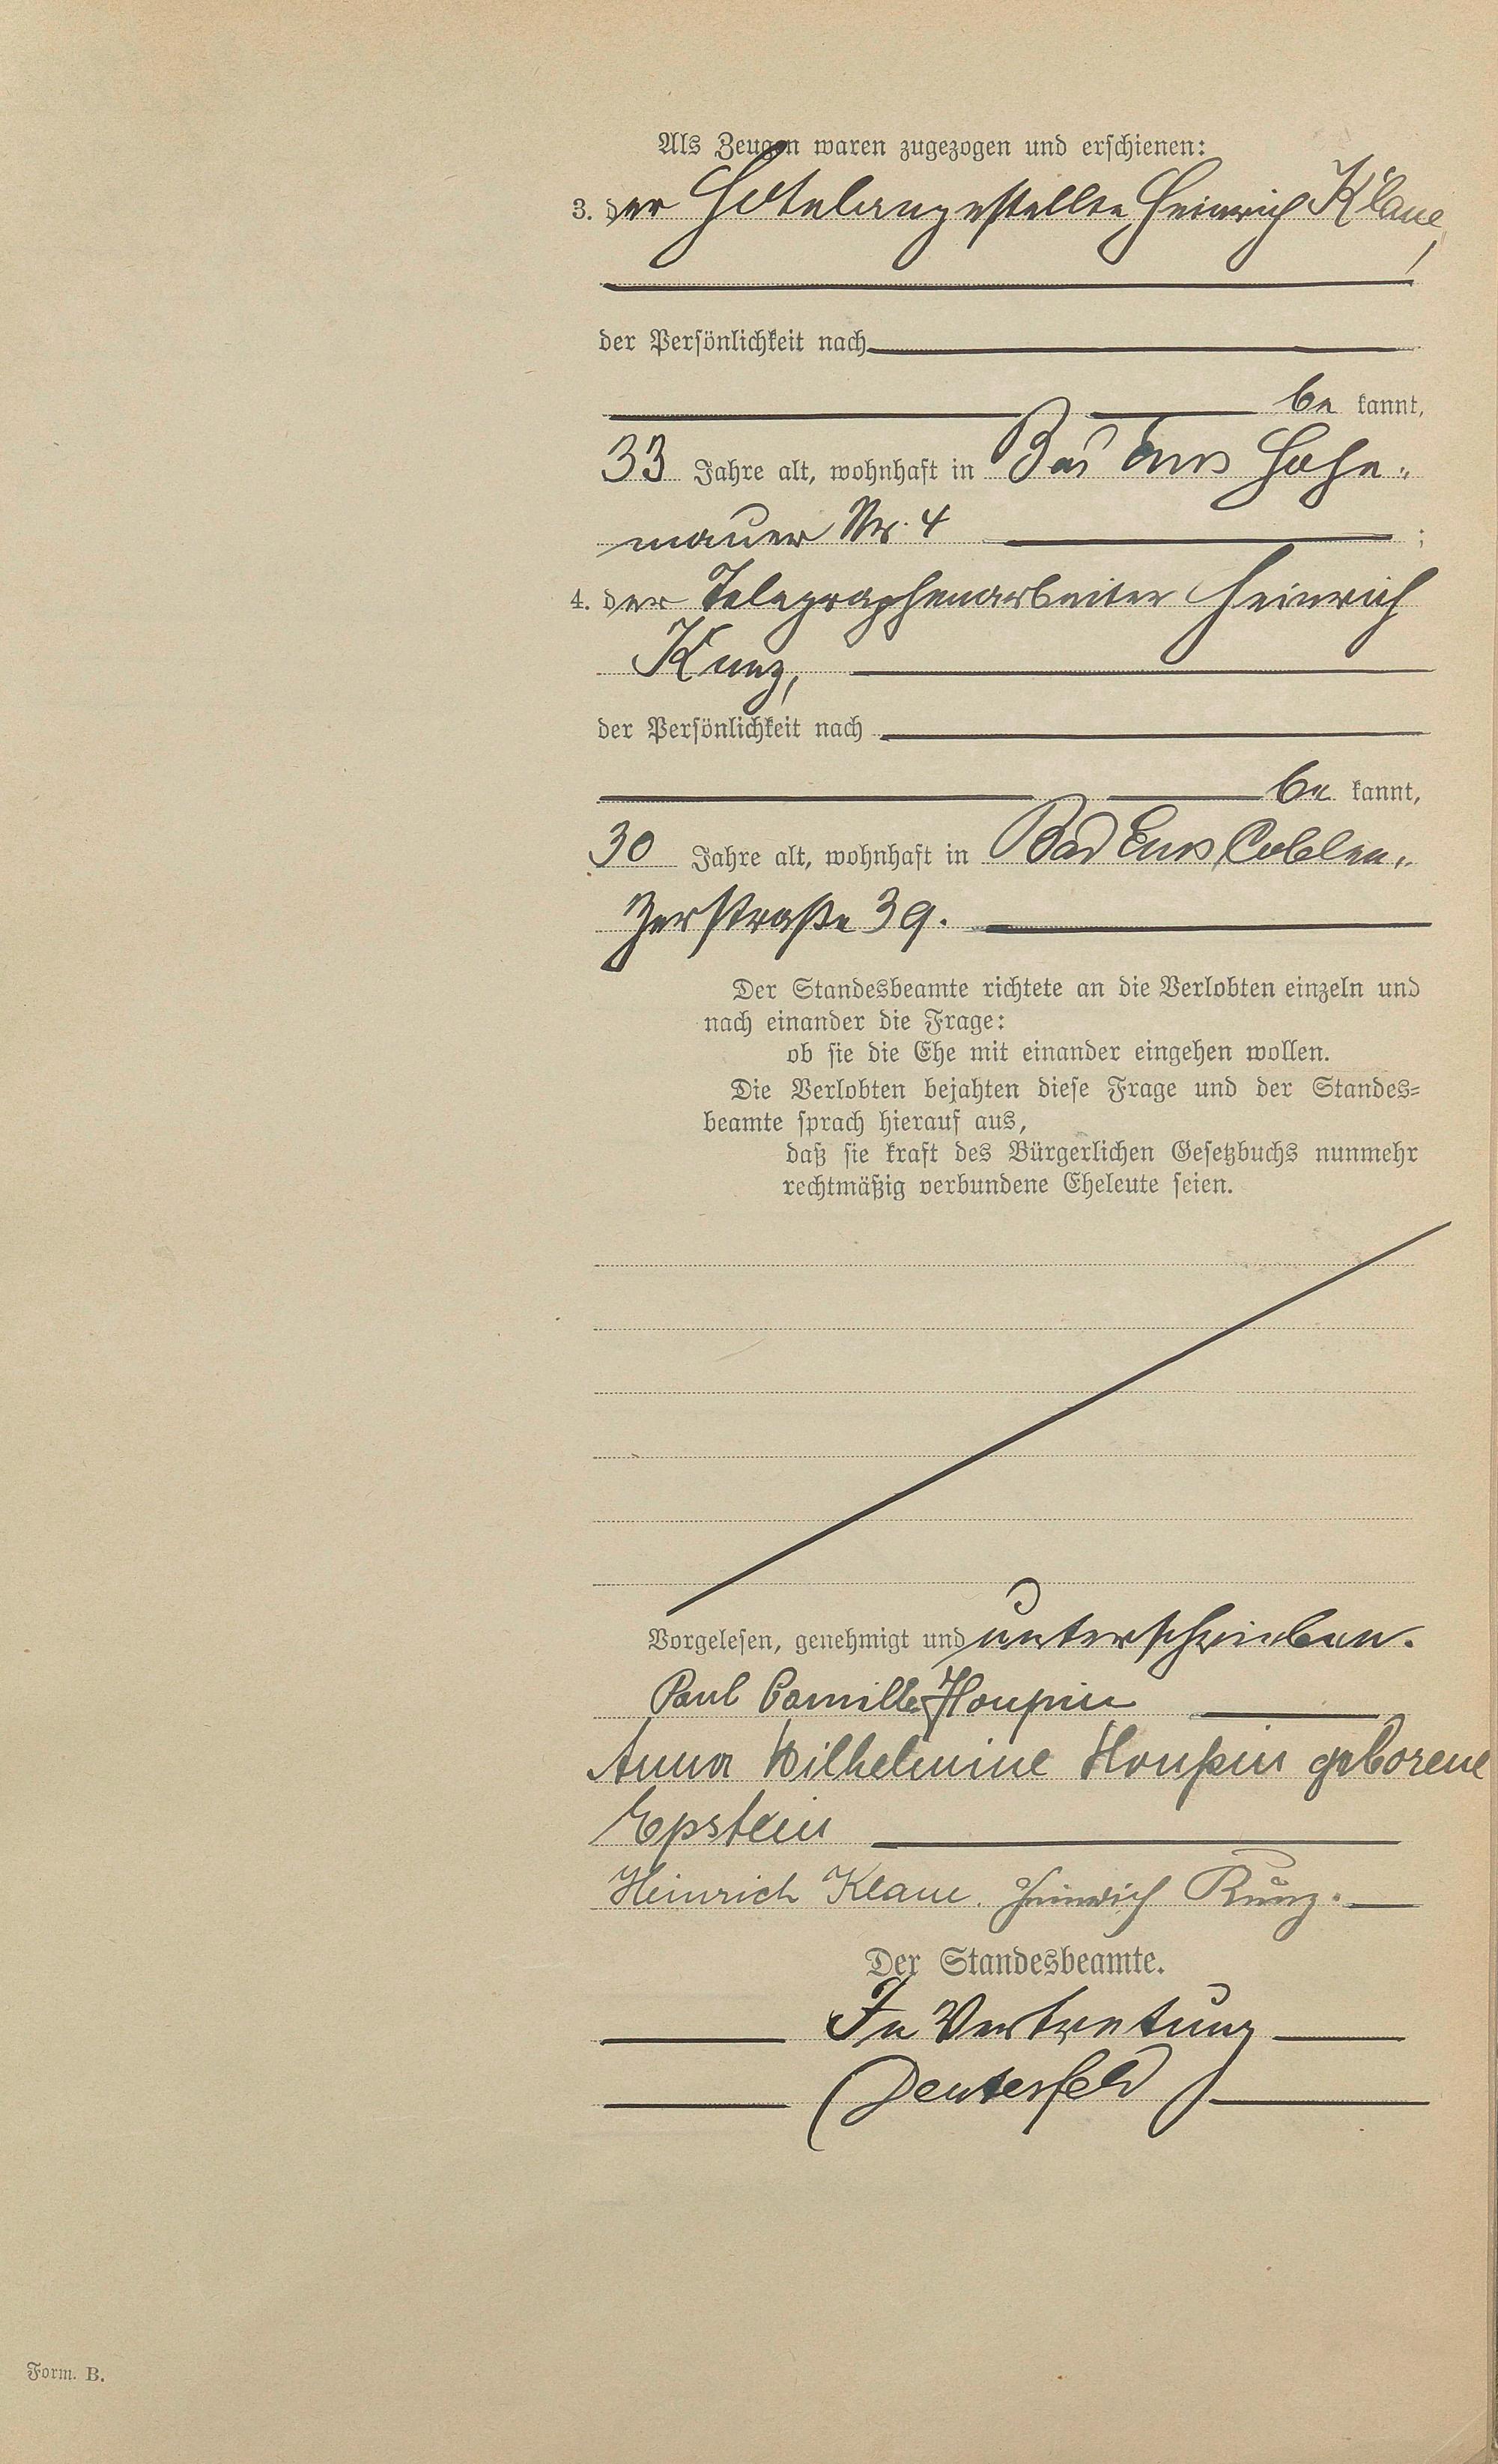 Als Zeugen waren zugezogen und erschienen:
3. der Hotelangestellte Heinrich Klaue,
der Persönlichkeit nach
be kannt,
33 Jahre alt, wohnhaft in Bad Ems Hohe-
mauer Nr. 4 ;
4. der Telegraphenarbeiter Heinrich
Kunz,
der Persönlichkeit nach
be kannt,
30 Jahre alt, wohnhaft in Bad Ems, Coblen-
zerstraße 39.
Der Standesbeamte richtete an die Verlobten einzeln und
nach einander die Frage:
ob sie die Ehe mit einander eingehen wollen.
Die Verlobten bejahten diese Frage und der Standes=
beamte sprach hierauf aus,
daß sie kraft des Bürgerlichen Gesetzbuchs nunmehr
rechtmäßig verbundene Eheleute seien.
Vorgelesen, genehmigt und unterschrieben.
Paul Camille Houpin
Anna Wilhelmine Houpin geborene
Epstein
Heinrich Klaue. Heinrich Kunz.
Der Standesbeamte.
In Vertretung
Deusterfeld
Form. B.